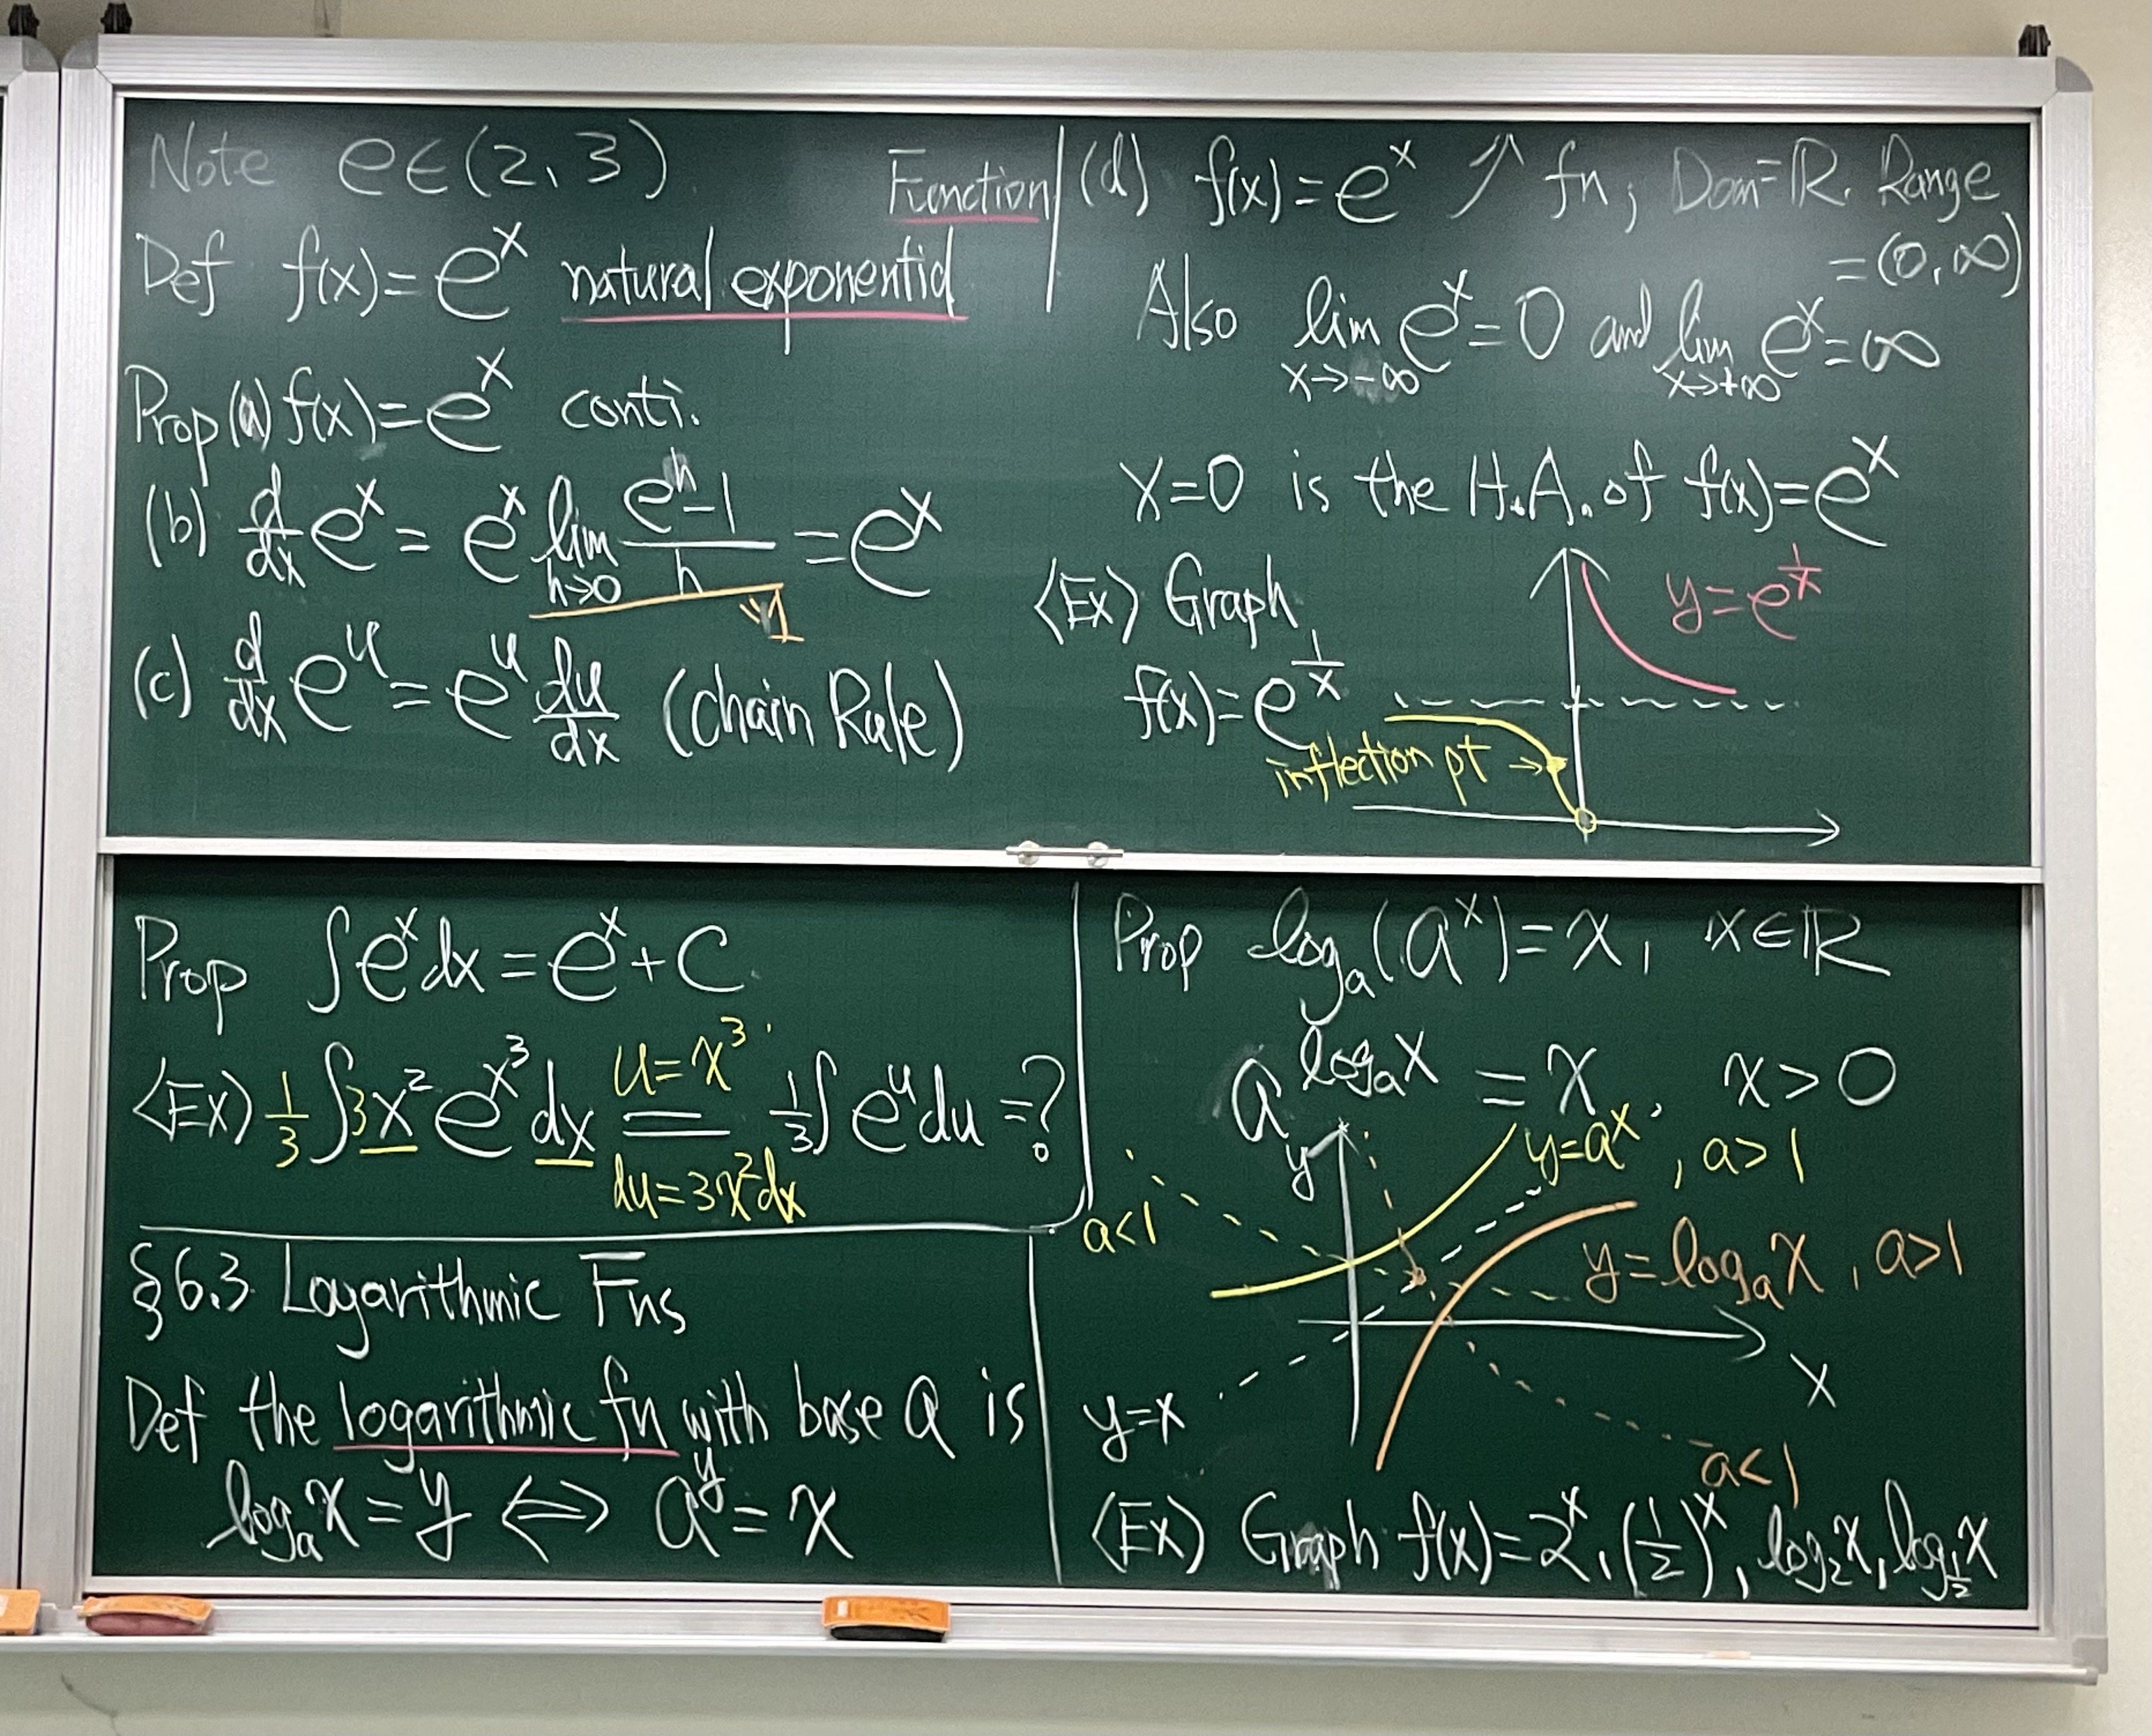 Note e∈(2,3).
Def f(x)=e^x natural exponential Function
Prop (a) f(x)=e^x conti.
(b) d/dx e^x = e^x lim_{h→0} (e^h-1)/h = e^x
=1
(c) d/dx e^u = e^u du/dx (Chain Rule)
(d) f(x)=e^x ↗ fn; Dom=ℝ. Range
=(0,∞)
Also lim_{x→-∞} e^x=0 and lim_{x→+∞} e^x=∞
x=0 is the H.A. of f(x)=e^x
<Ex> Graph
f(x)=e^{1/x}
y=e^{1/x}
inflection pt →
Prop ∫e^x dx = e^x + C.
<Ex> 1/3 ∫3x^2 e^{x^3} dx = 1/3 ∫e^u du =?
u=x^3
du=3x^2dx
§6.3 Logarithmic Fns
Def the logarithmic fn with base a is
log_a x = y ⟺ a^y = x
Prop log_a(a^x)=x, x∈ℝ
a^{log_a x} = x, x>0
y
y=a^x, a>1
a<1
y=log_a x, a>1
x
y=x
a<1
<Ex> Graph f(x)=2^x, (1/2)^x, log_2 x, log_{1/2} x